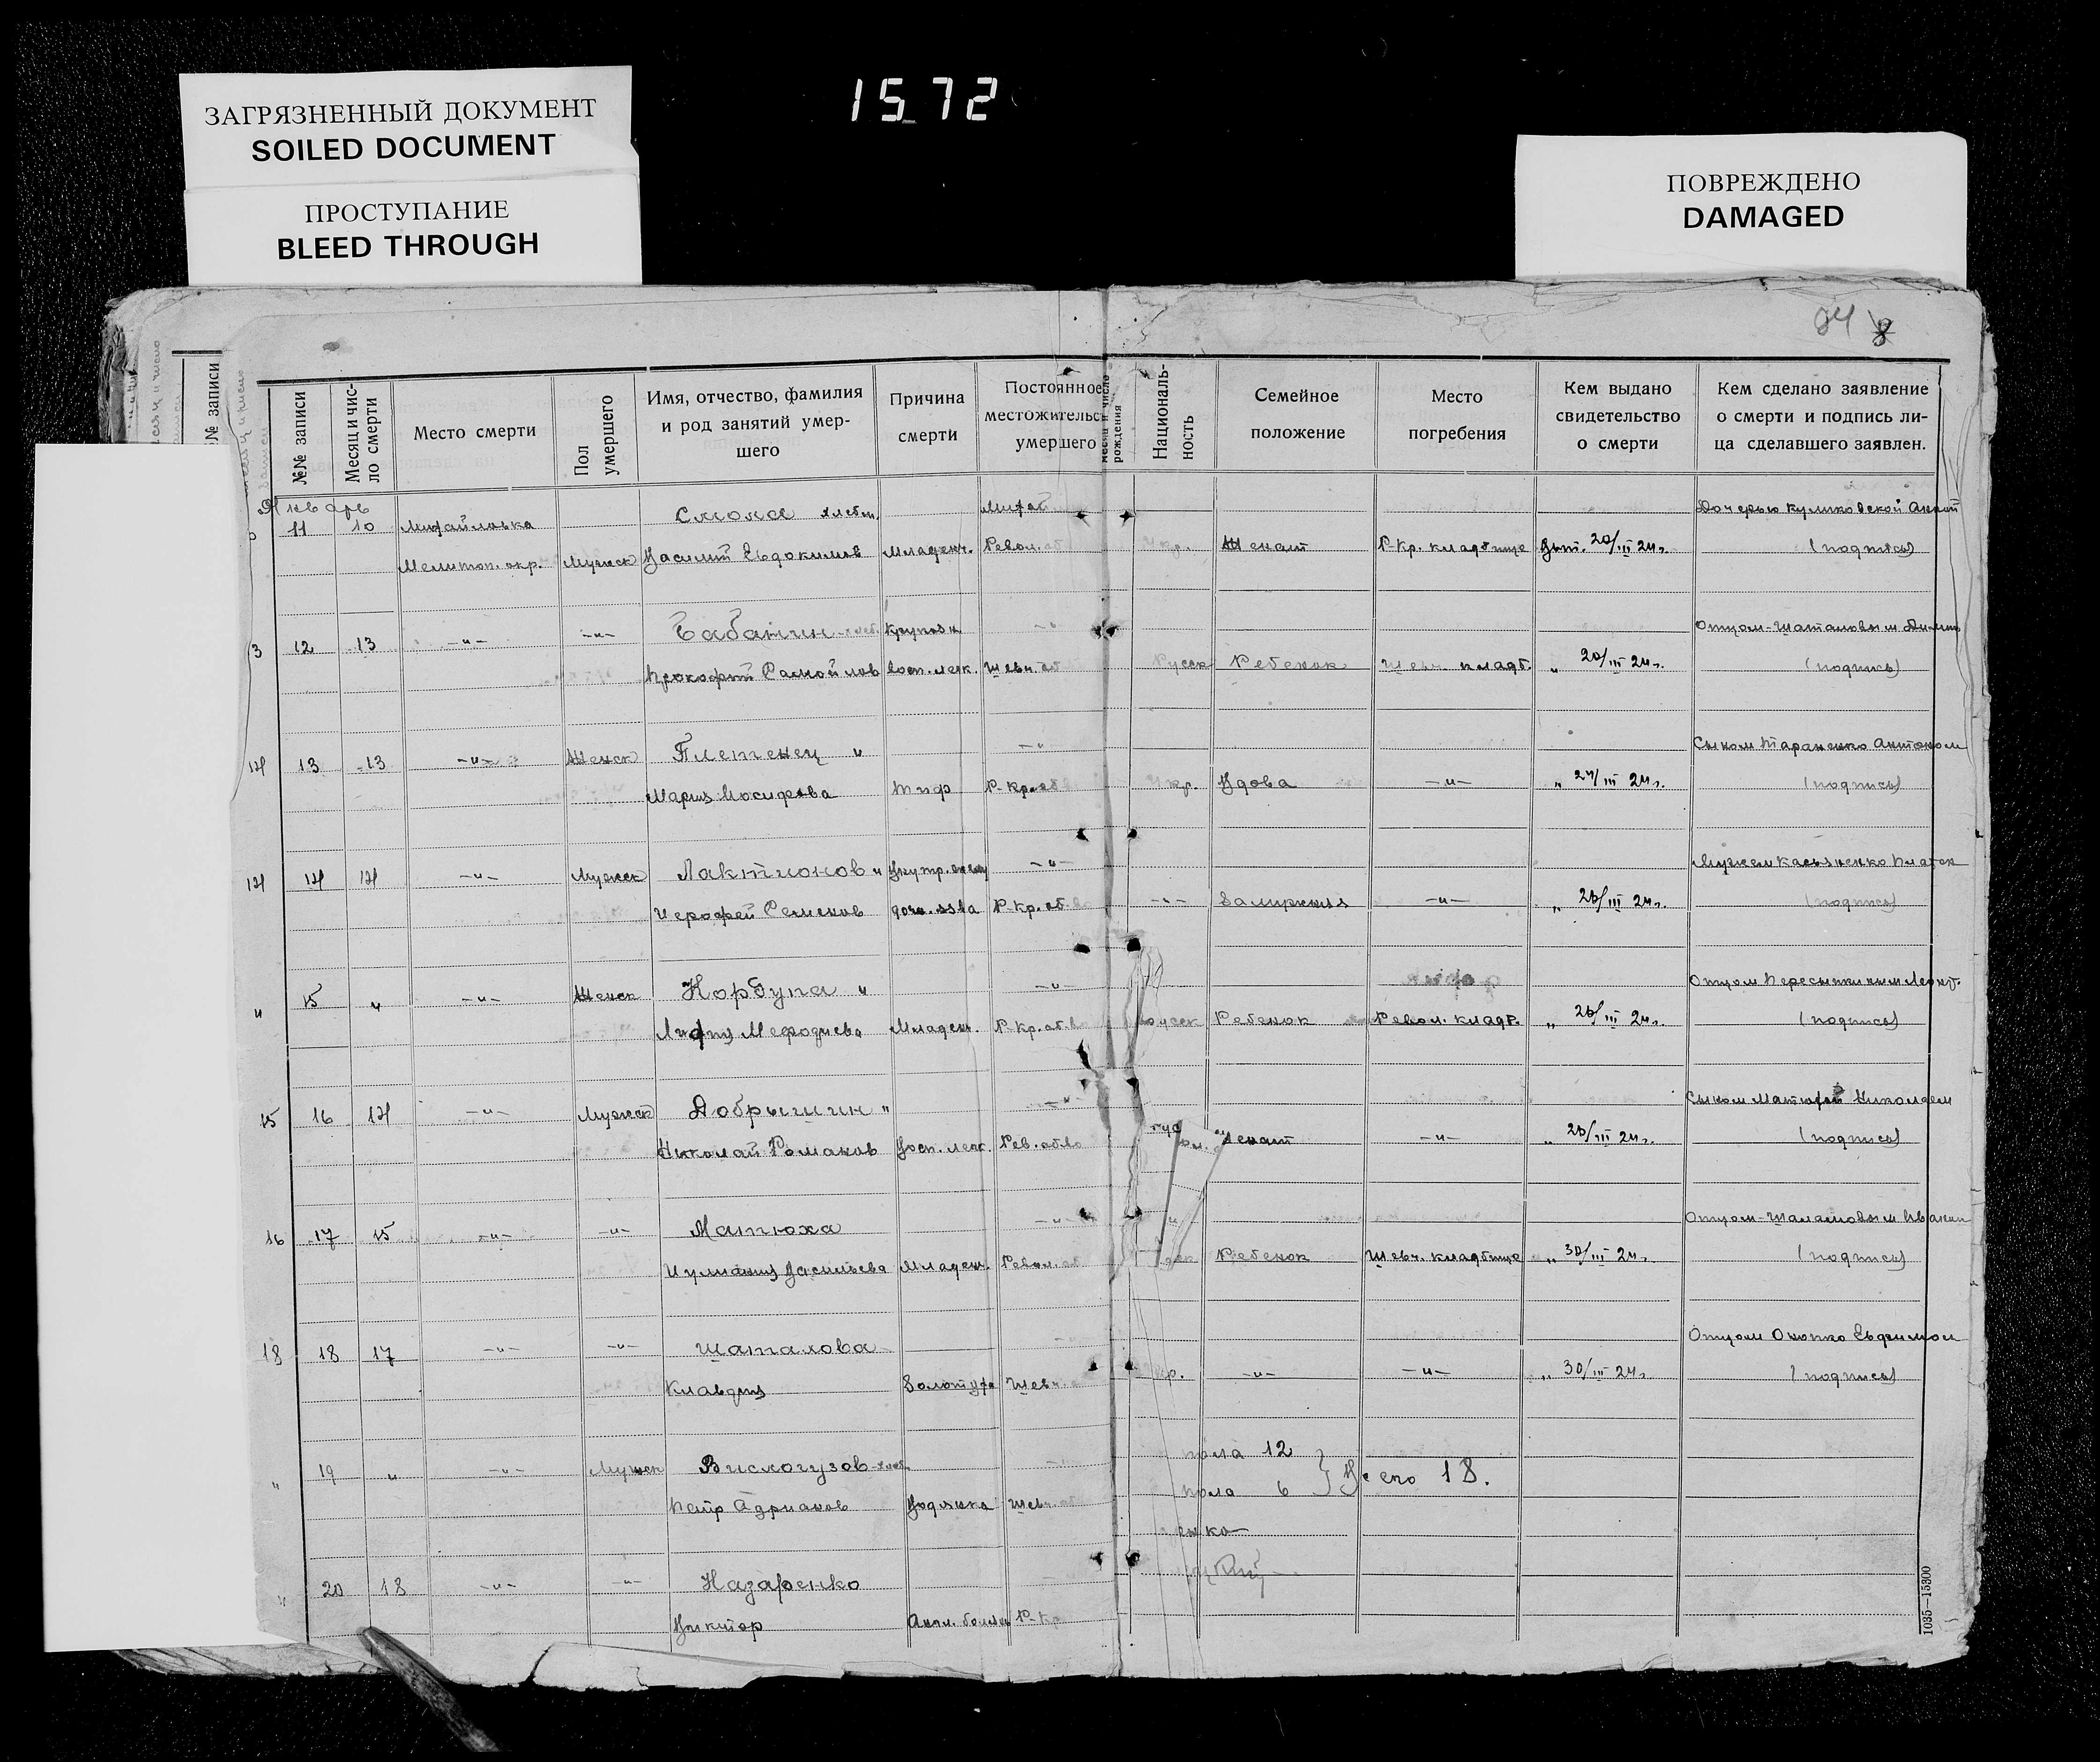 ЗАГРЯЗНЕННЫЙ ДОКУМЕНТ
SOILED DOCUMENT
ПРОСТУПАНИЕ
BLEED THROUGH
1572
ПОВРЕЖДЕНО
DAMAGED
84
№ записи
№№ записи
Месяц и чис-
ло смерти
Место смерти
Пол
умершего
Имя, отчество, фамилия
и род занятий умер-
шего
Причина
смерти
Постоянное
местожительс
умершего
месяц и число
рождения
Националь-
ность
Семейное
положение
Место
погребения
Кем выдано
свидетельство
о смерти
Кем сделано заявление
о смерти и подпись ли-
ца сделавшего заявлен.
Январь
11 10 Михайловка Смола хлебоп. Михай Дочерью Куликовской Анной
Мелитоп. окр. Мужск Василий Евдокимов Младенч.Револ. об Укр. Женат Р-Кр. кладбище Выт. 20/III 24 г. (подпись)
3 12 13 -"- -"- Бабанин Крупозн Отцом-Шаталовым
Прокофий Самойлов восп. легк. Шевч. об Русск Ребенок Шевч. кладб. " 20/III 24 г. (подпись)
14 13 13 -"- Женск Плетенец " -"- Сыном Тараненко Антоном
Мария Иосифова Тиф Р-Кр. об Укр. Вдова -"- " 24/III 24 г. (подпись)
14 14 14 -"- Мужск Лактионов " -"- Мужем Касьяненко
Иерофей Семенов Р-Кр. об. -"- -"- " 26/III 24 г. (подпись)
" 15 " -"- Женск Корбула " -"- Отцом Пересыпкиным Леонт.
Лидия Мефодиева Младен. Р-Кр. об. русск Ребенок Револ. кладб. " 26/III 24 г. (подпись)
15 16 14 -"- Мужск Добрышин " -"- Сыном Матюхой Николаем
Николай Романов Восп. легк. Рев. об-во Женат -"- " 26/III 24 г. (подпись)
16 17 15 -"- -"- Матюха -"- " Отцом-Шаталовым Иваном
Иулиания Васильева Младен. Револ. об Ребенок Шевч. кладбище " 30/III 24 г. (подпись)
18 18 17 -"- -"- Шаталова Отцом Онопко Евдокимом
Клавдия Золотуха Шевч. Укр. -"- -"- " 30/III 24 г. (подпись)
" 19 " -"- Мужск Вислогузов-хлеб. пола 12
Петр Адрианов Водянка Шевч. об пола 6 } Всего 18.
енко
" 20 18 -"- -"- Назаренко
Виктор Англ. болезн Р-Кр
1035—15300